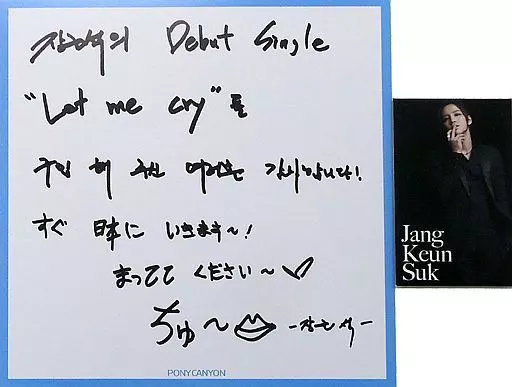 장근석의 Debut Single
"Let me cry"를
구입 해 주신 여러분 감사합니다!
すぐ 日本に いきます~!
まってて ください~♡
ちゅ~
-장근석-
PONYCANYON
Jang
Keun
Suk